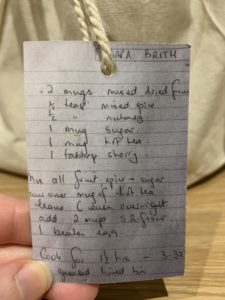 BARA BRITH
2 mugs mixed dried fruit
½ teasp mixed spice
½ " nutmeg.
1 mug sugar.
1 mug hot tea
1 tablesp cherry.
Mix all fruit, spice + sugar
pour over mug of hot tea
leave 6 even overnight
add 2 mugs S.R flour
1 beaten egg
Cook for 1½ hrs -
greased lined tin